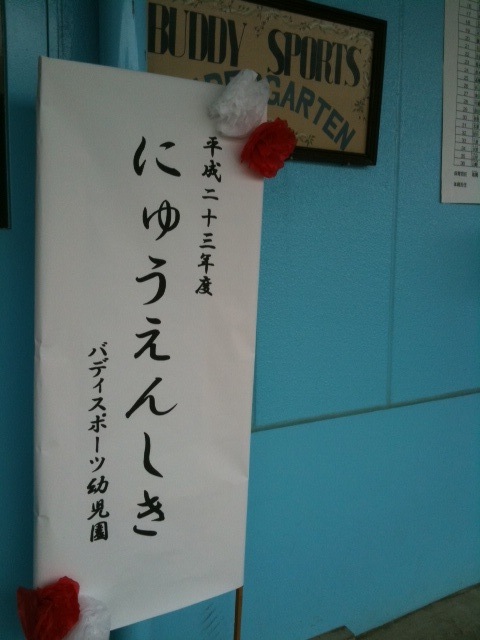 BUDDY SPORTS
GARTEN
平成二十三年度
にゅうえんしき
バディスポーツ幼児園